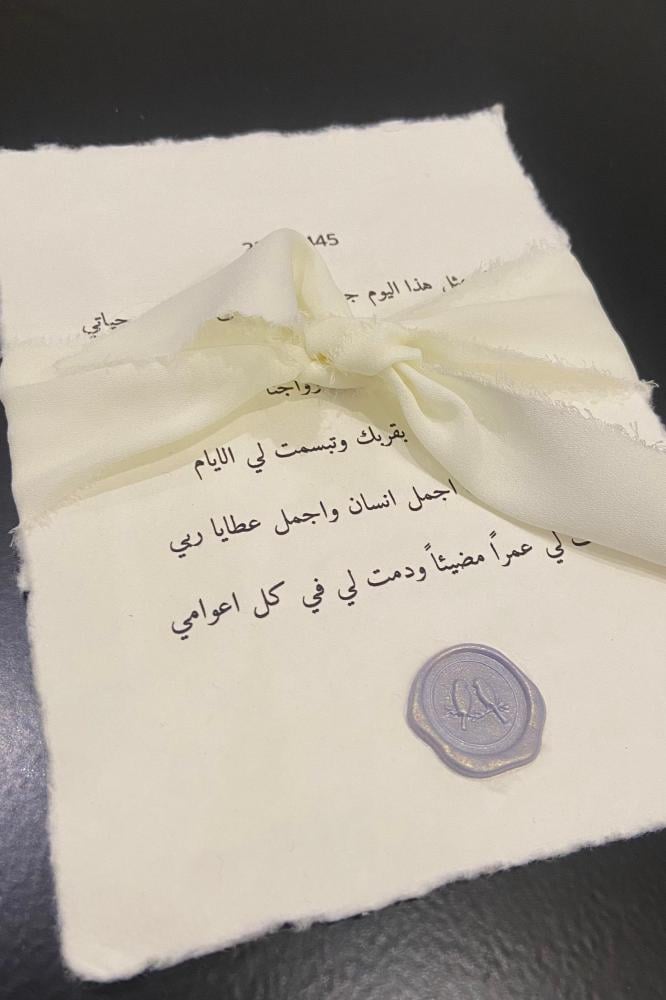 هذا اليوم
حياتي
زواجنا
بقربك وتبسمت لي الايام
اجمل انسان واجمل عطايا ربي
لي عمراً مضيئاً ودمت لي في كل اعوامي